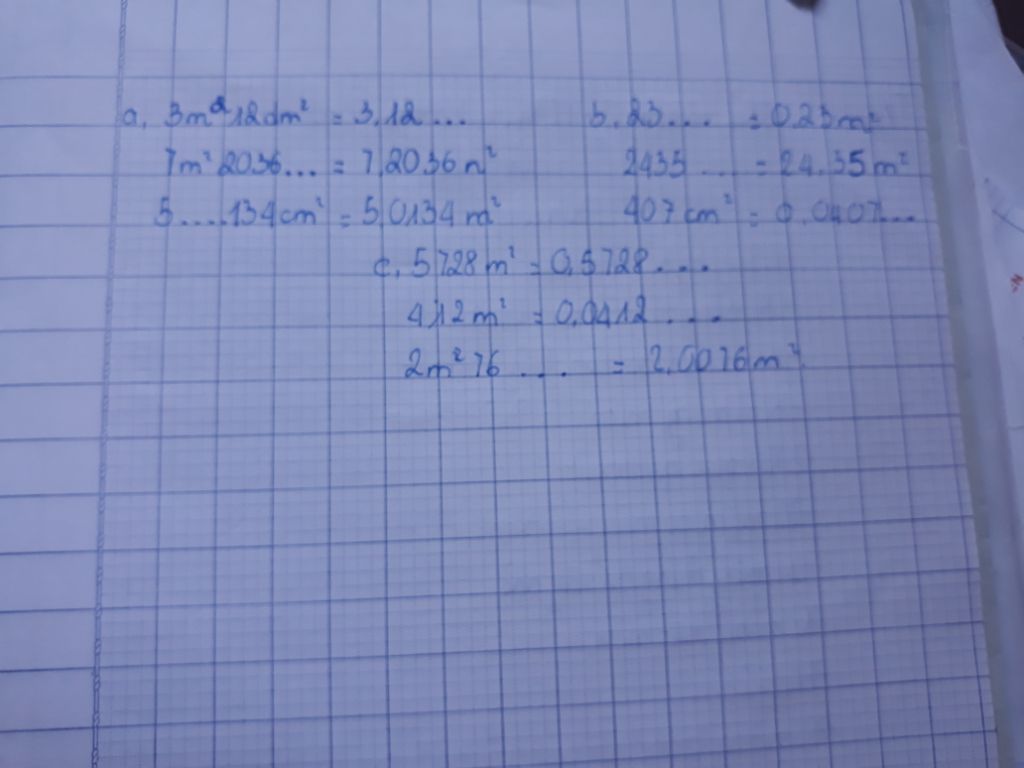 a, 3m² 12dm² = 3,12... b. 23.... = 0.23m²
7m² 2036... = 7,2036m² 2435 .... = 24.35m²
5....134cm² = 5,0134m² 407cm² = 0,0407...
c. 5728m² = 0,5728....
412m² = 0,0412....
2m² 76 .... = 2,0076m²